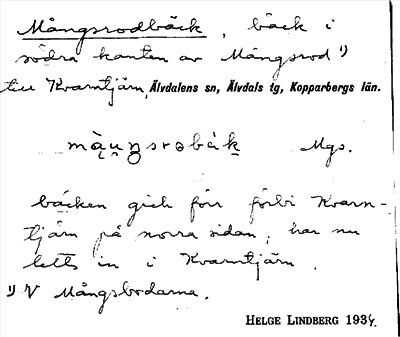 Mångsrodbäck, bäck i
södra kanten av Mångsrod ¹)
till Kvarntjärn, Älvdalens sn, Älvdals tg, Kopparbergs län.
Mgs.
bäcken gick förr förbi Kvarn-
tjärn på norra sidan, har nu
letts in i Kvarntjärn.
¹) V Mångsbodarna.
HELGE LINDBERG 1934.